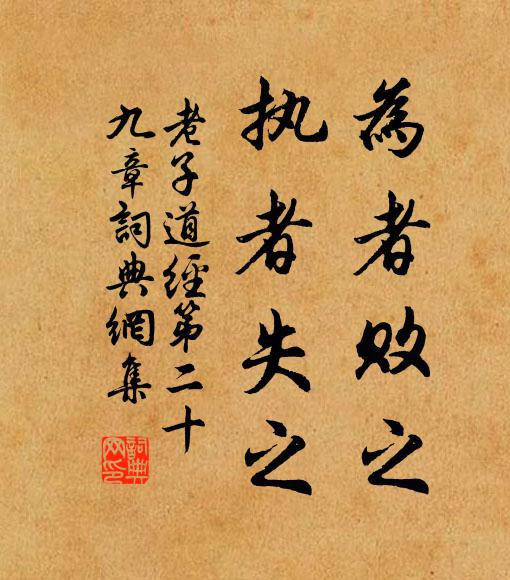 為者败之
执者失之
老子道經第二十
九章詞典網集
詞典网印